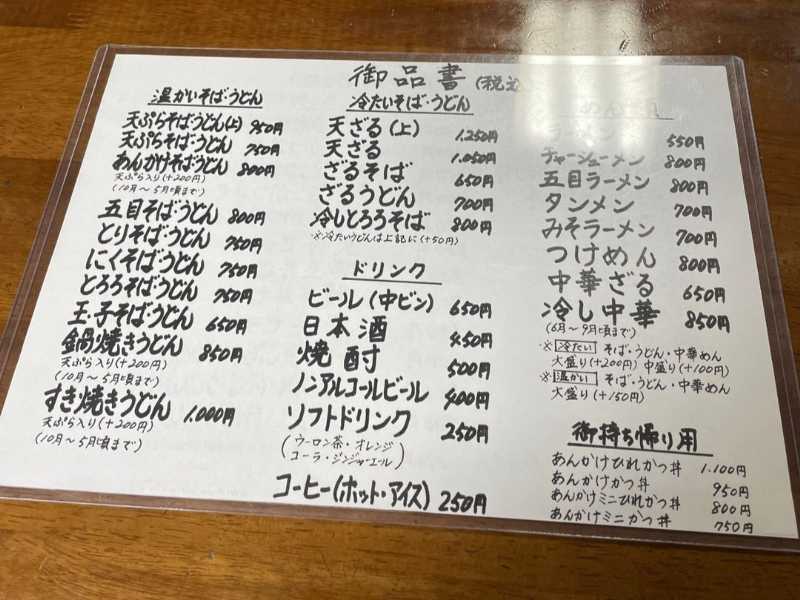 御品書(税込
温かいそば・うどん
天ぷらそば・うどん(上) 950円
天ぷらそば・うどん 750円
あんかけそば・うどん 800円
天ぷら入り(+200円)
(10月〜5月頃まで)
五目そば・うどん 800円
とりそば・うどん 750円
にくそば・うどん 750円
とろろそば・うどん 750円
玉子そば・うどん 650円
鍋焼きうどん 850円
天ぷら入り(+200円)
(10月〜5月頃まで)
すき焼きうどん 1.000円
天ぷら入り(+200円)
(10月〜5月頃まで)
冷たいそば・うどん
天ざる(上) 1.250円
天ざる 1.050円
ざるそば 650円
ざるうどん 700円
冷しとろろそば 800円
※冷たいうどんは上記に(+50円)
ドリンク
ビール(中ビン) 650円
日本酒 450円
焼酎 500円
ノンアルコールビール 400円
ソフトドリンク 250円
(ウーロン茶・オレンジ
コーラ・ジンジャーエール)
コーヒー(ホット・アイス) 250円
ラーメン 550円
チャーシューメン 800円
五目ラーメン 800円
タンメン 700円
みそラーメン 700円
つけめん 800円
中華ざる 650円
冷し中華 850円
(6月〜9月頃まで)
※冷たい そば・うどん・中華めん
大盛り(+200円) 中盛り(+100円)
※温かい そば・うどん・中華めん
大盛り(+150円)
御持ち帰り用
あんかけひれかつ丼 1.100円
あんかけかつ丼 950円
あんかけミニひれかつ丼 800円
あんかけミニかつ丼 750円